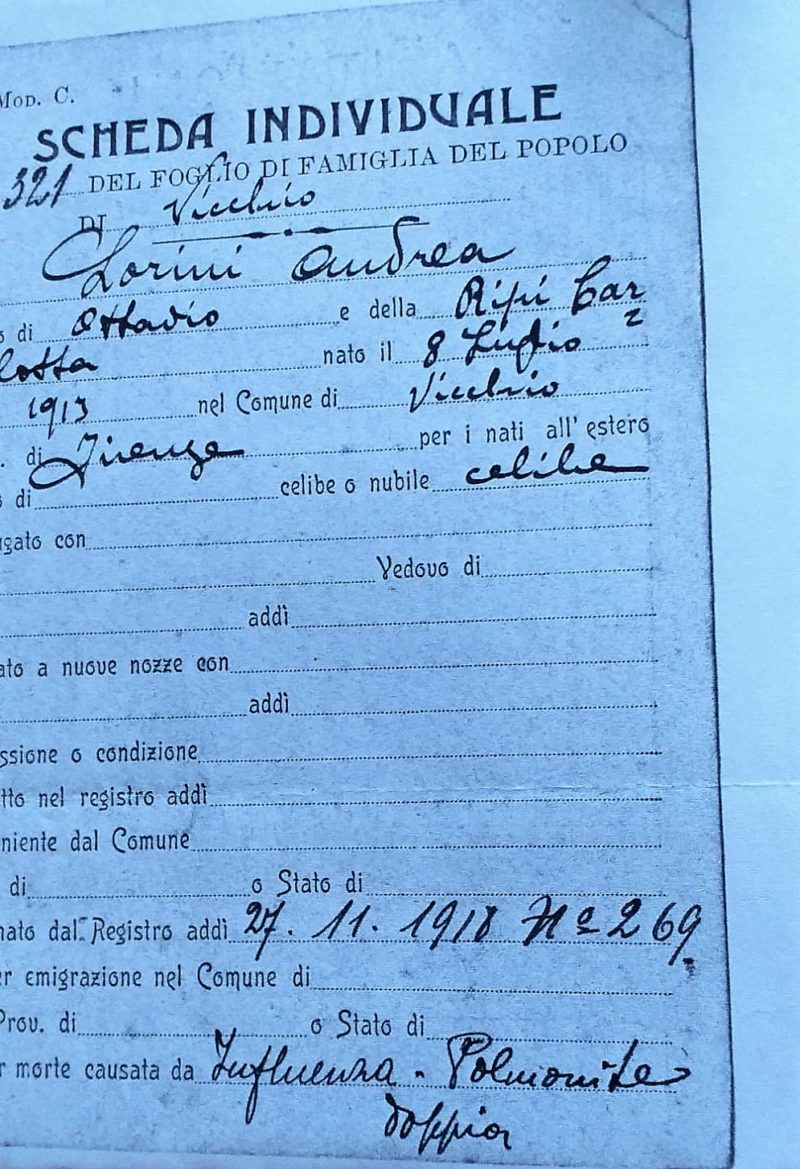 Mod. C.
SCHEDA INDIVIDUALE
321 DEL FOGLIO DI FAMIGLIA DEL POPOLO
DI Vicchio
Lorini Andrea
o di Ottavio e della Ripi Car
lotta nato il 8 Luglio
1913 nel Comune di Vicchio
. di Firenze per i nati all'estero
o di celibe o nubile celibe
ugato con
Vedovo di
addì
ato a nuove nozze con
addì
ssione o condizione
tto nel registro addì
niente dal Comune
di o Stato di
nato dal Registro addì 27. 11. 1918 Nº 269
er emigrazione nel Comune di
Prov. di o Stato di
r morte causata da Influenza - Polmonite
doppia